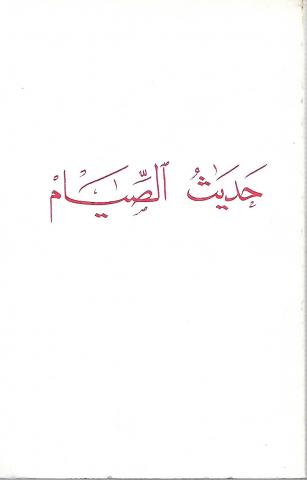 حَديثُ الصِّيَامْ